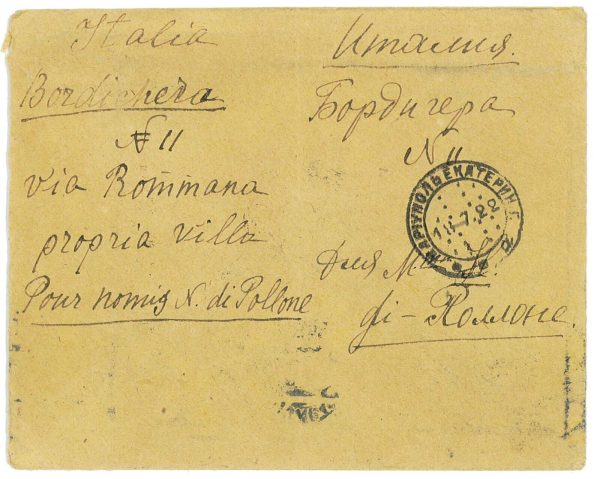 Italia
Bordighera
N 11
via Rommana
propria villa
Pour nomis N. di Pollone
Италия.
Бордигера
N 11
для M
di-Поллоне.
МАРІУПОЛЬ ЕКАТЕРИН. Г.
7.22